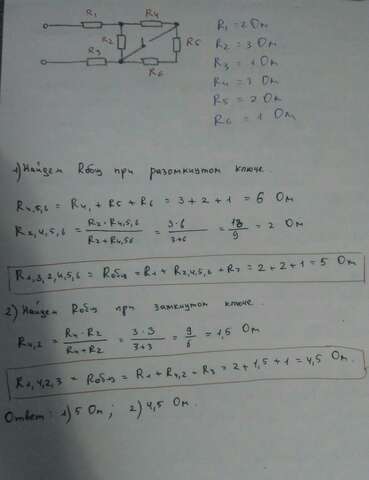 R1 R4
R2 R5
R3 R6
R1 = 2 Ом
R2 = 3 Ом
R3 = 1 Ом
R4 = 3 Ом
R5 = 2 Ом
R6 = 1 Ом
1) Найдем Rобщ при разомкнутом ключе.
R4,5,6 = R4 + R5 + R6 = 3 + 2 + 1 = 6 Ом
R2,4,5,6 = R2 · R4,5,6 / R2 + R4,5,6 = 3·6 / 3+6 = 18 / 9 = 2 Ом
R1,3,2,4,5,6 = Rобщ = R1 + R2,4,5,6 + R3 = 2 + 2 + 1 = 5 Ом
2) Найдем Rобщ при замкнутом ключе.
R4,2 = R4 · R2 / R4 + R2 = 3 · 3 / 3+3 = 9 / 6 = 1,5 Ом
R1,4,2,3 = Rобщ = R1 + R4,2 + R3 = 2 + 1,5 + 1 = 4,5 Ом.
Ответ: 1) 5 Ом; 2) 4,5 Ом.